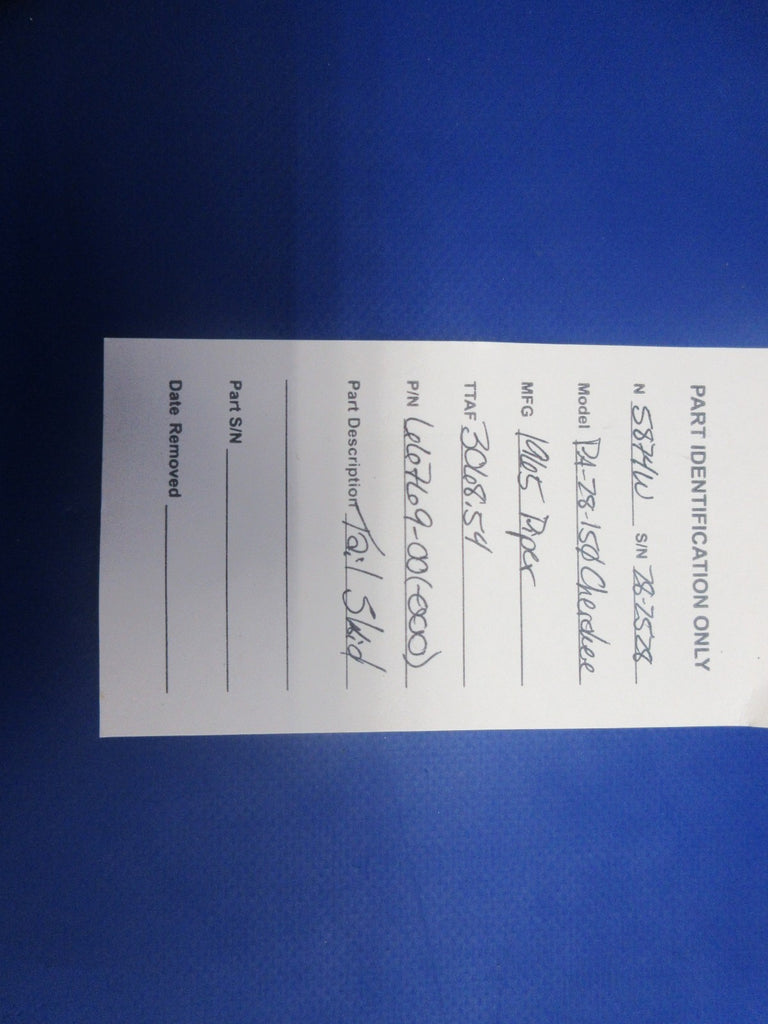 PART IDENTIFICATION ONLY
N 5874W S/N 28-2528
Model PA-28-150 Cherokee
MFG 1965 Piper
TTAF 3068.54
P/N 66769-00(-000)
Part Description Tail Skid
Part S/N
Date Removed